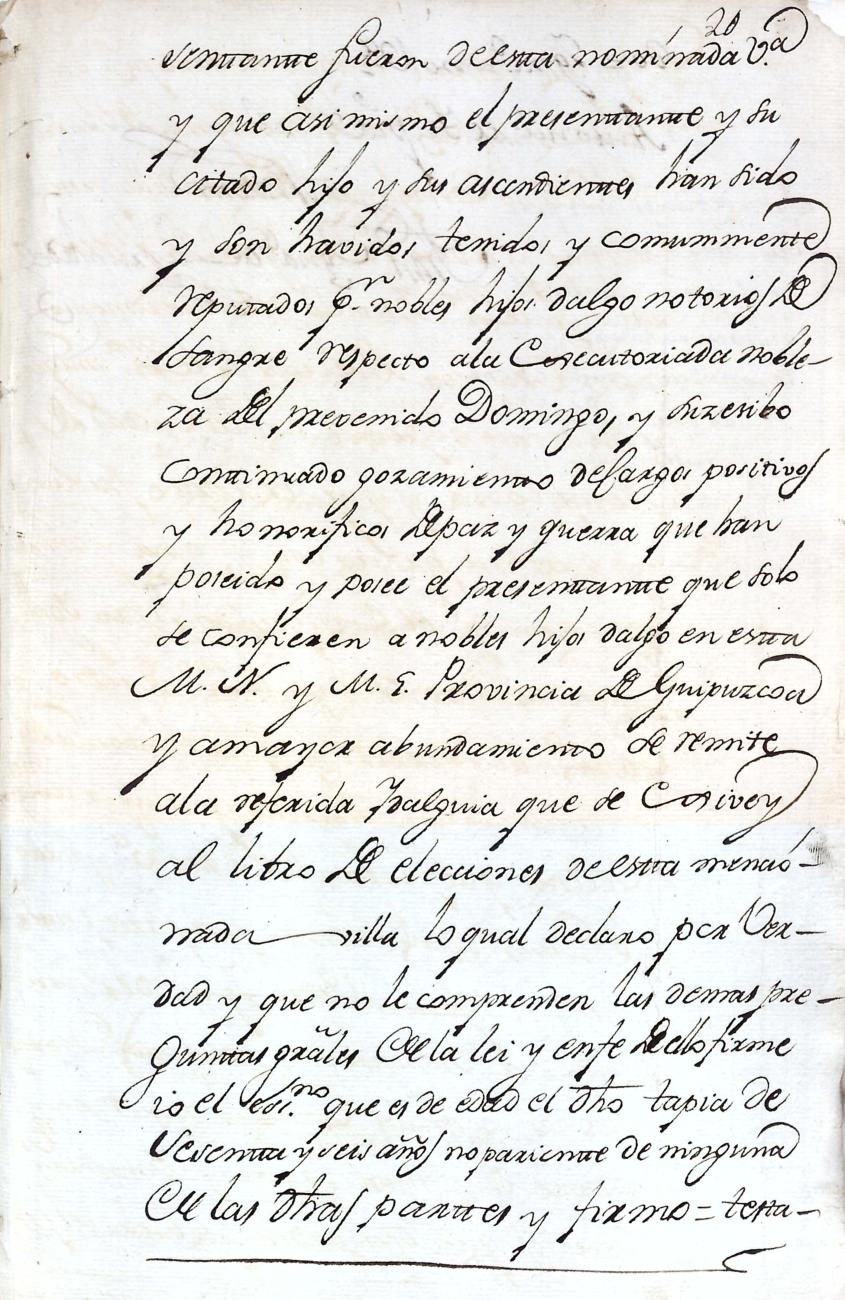 20
sentante fueron de esta nominada V.ª
y que asi mismo el presentante y su
citado hijo y sus ascendientes han sido
y son havidos tenidos y comummente
reputados pr nobles hijos dalgo notorios De
sangre respecto ala Executoriada noble-
za Del prevenido Domingo, y
Continuado gozamiento de Cargos positivos
y honorificos De paz y guerra que han
poseido y posee el presentante que solo
se confieren a nobles hijos dalgo en esta
M. N. y M. L. Provincia De Guipuzcoa
y amayor abundamiento se remite
ala referida Ydalguia que se
al libro De elecciones de esta mencio-
nada villa lo qual declaro por Ver-
dad y que no le comprenden las demas pre-
Guntas grãles De la lei y enfe De ello firme
io el essno que es de edad el dho tapia de
Sesenta y seis años no pariente de ninguna
De las dhas partes y firmo = testa-